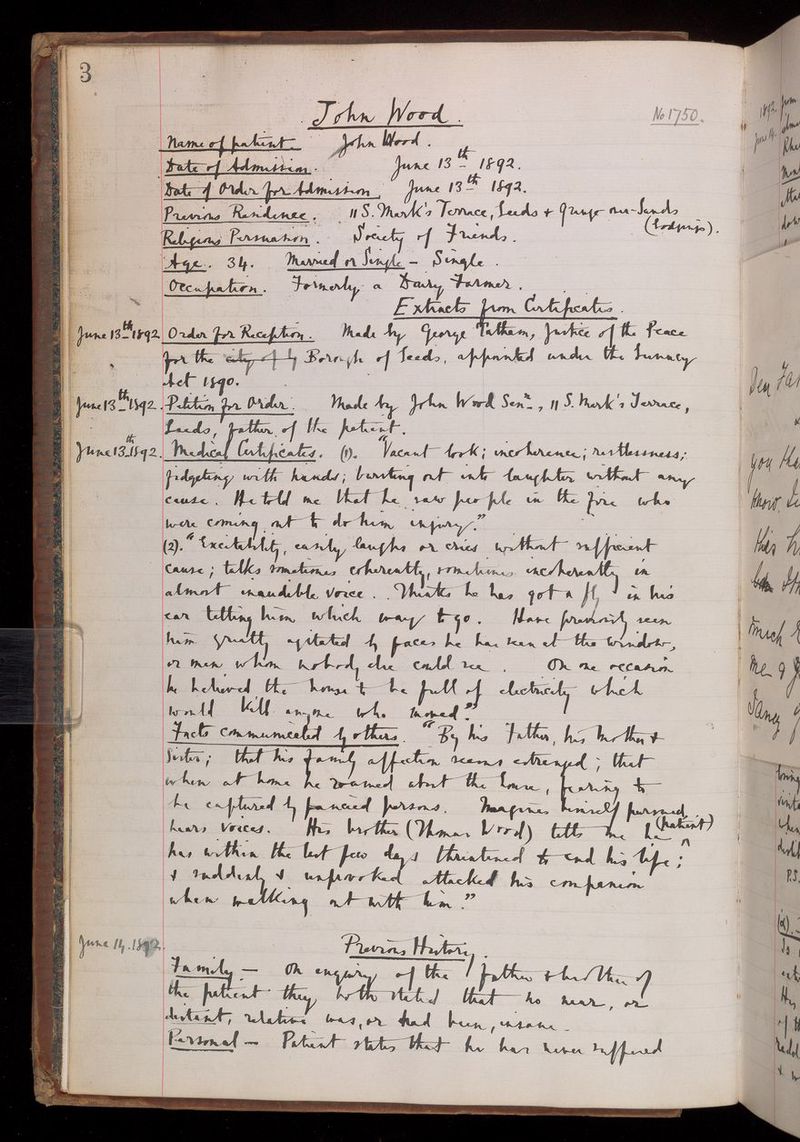 3
John Wood. No 1750.
Name of patient John Wood.
Date of Admission. June 13th 1892.
Date of Order for Admission June 13th 1892.
Previous Residence. 11 S. Mark's Terrace, Leeds & Grange over Sands
(Lodgings).
Religious Persuasion. Society of Friends.
Age. 34. Married or Single - Single.
Occupation. Formerly a Dairy Farmer.
Extracts from Certificates.
June 13th 1892 Order for Reception. Made by George Tatham, Justice of the Peace
for the city of Borough of Leeds, appointed under the Lunacy
Act 1890.
June 13th 1892. Petition for Order. Made by John Wood Senr., 11 S. Mark's Terrace,
Leeds, father of the patient.
June 13th 1892. Medical Certificates. (1). "Vacant look; incoherence; restlessness;
fidgeting with hands; bursting out into laughter without any
cause. He told me that he saw people in the fire who
were coming out to do him injury."
(2). "Excitability, easily laughs or cries without sufficient
cause; talks sometimes coherently, sometimes incoherently in
almost inaudible voice. Thinks he has got a fly in his
ear telling him which way to go. Have previously seen
him greatly agitated by faces he has seen at the window,
or men whom nobody else could see. On one occasion
he believed the house to be full of electricity which
would kill anyone who moved."
Facts communicated by others. "By his Father, his brother &
Sister; that his family affection seems estranged; that
when at home he roamed about the house, fearing to
be captured by fancied persons. Imagines himself pursued,
hears voices. His brother (Thomas Wood) tells me he (patient)
has within the last few days threatened to end his life;
& suddenly & unprovoked attacked his companion
when walking out with him."
June 14. 1892. Previous History.
Family - On enquiry of the father & brother of
the patient they both stated that no near, or
distant, relative was, or had been, insane.
Personal - Patient states that he has never suffered